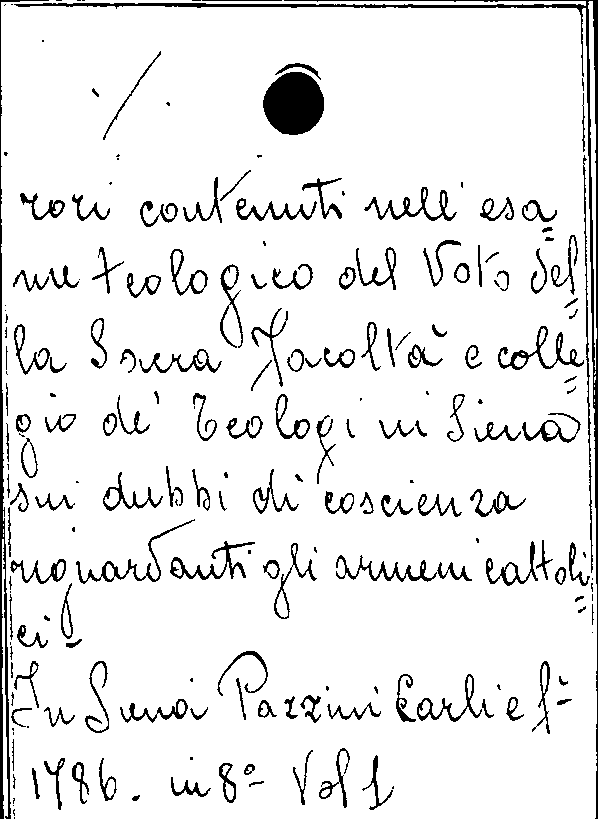 ./.
rori contenuti nell'esa=
me teologico del Voto del=
la Sacra Facoltà e colle=
gio de' Teologi in Siena
sui dubbi di coscienza
riguardanti gli armeni cattoli=
ci-
In Siena Pazzini Carli e f.-
1786. in 8º Vol 1